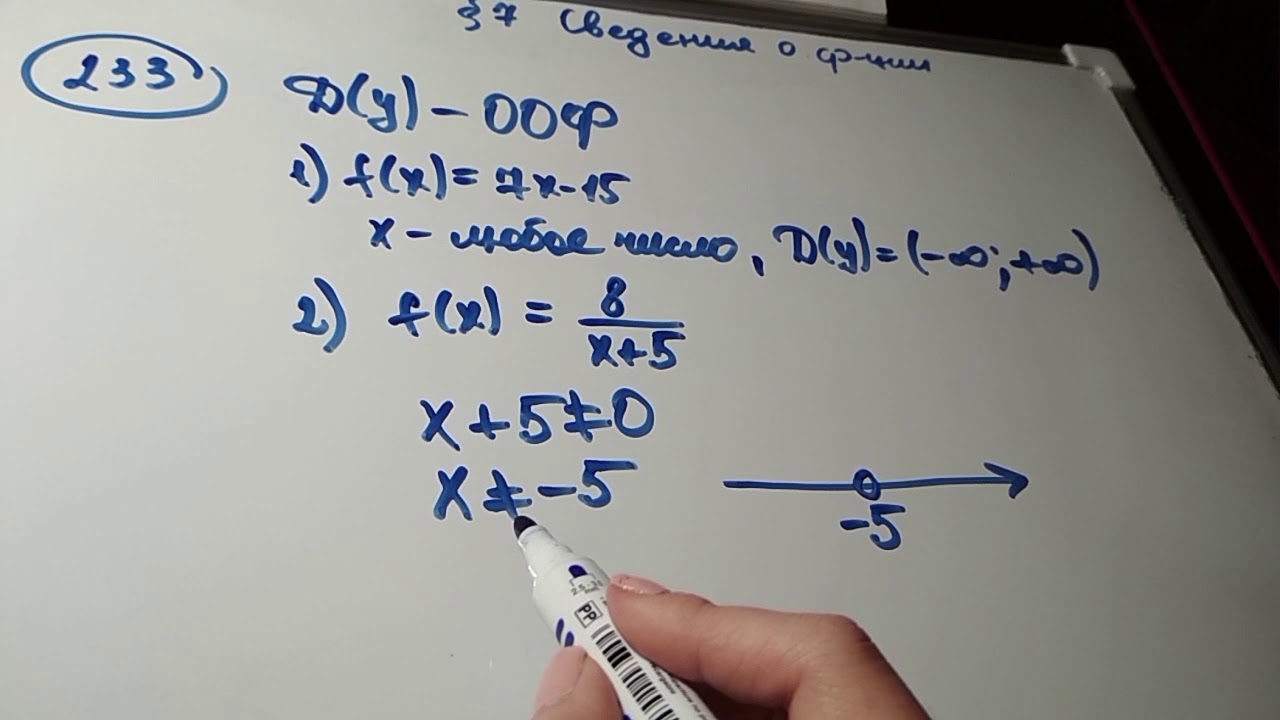 § 7 Сведения о ф-ции
233
D(y) – ООФ
1) f(x) = 7x - 15
x – любое число, D(y) = (-∞; +∞)
2) f(x) = 8/(x+5)
x + 5 ≠ 0
x ≠ -5
-5
PP